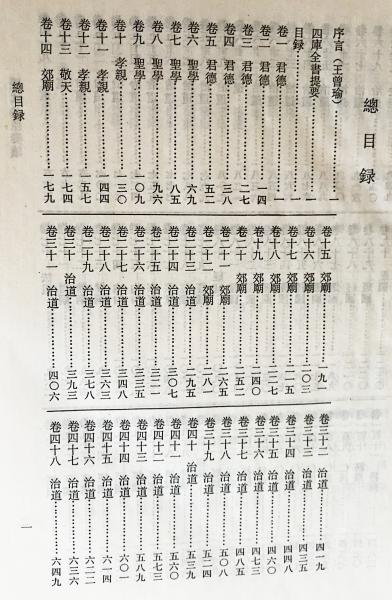 總目録
序言（王曾瑜）……一
四庫全書提要……一
目録……一
卷一 君德……一
卷二 君德……一四
卷三 君德……二七
卷四 君德……三八
卷五 君德……五二
卷六 聖學……六九
卷七 聖學……八五
卷八 聖學……九六
卷九 聖學……一〇九
卷十 孝親……一三〇
卷十一 孝親……一四四
卷十二 孝親……一五七
卷十三 敬天……一七四
卷十四 郊廟……一七九
卷十五 郊廟……一九一
卷十六 郊廟……二〇三
卷十七 郊廟……二一五
卷十八 郊廟……二二七
卷十九 郊廟……二四〇
卷二十 郊廟……二五二
卷二十一 郊廟……二六五
卷二十二 郊廟……二八一
卷二十三 治道……二九五
卷二十四 治道……三〇七
卷二十五 治道……三二一
卷二十六 治道……三三五
卷二十七 治道……三四八
卷二十八 治道……三六三
卷二十九 治道……三七八
卷三十 治道……三九三
卷三十一 治道……四〇六
卷三十二 治道……四一九
卷三十三 治道……四三五
卷三十四 治道……四四八
卷三十五 治道……四六〇
卷三十六 治道……四七三
卷三十七 治道……四八五
卷三十八 治道……五〇八
卷三十九 治道……五二四
卷四十 治道……五三九
卷四十一 治道……五六〇
卷四十二 治道……五七三
卷四十三 治道……五八九
卷四十四 治道……六〇一
卷四十五 治道……六一四
卷四十六 治道……六二二
卷四十七 治道……六三六
卷四十八 治道……六四九
總目録
一